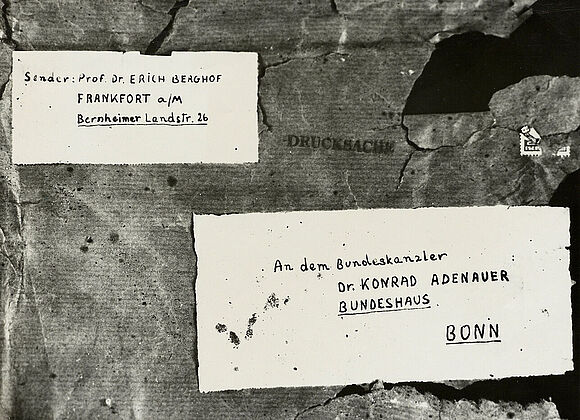 Sender: Prof. Dr. ERICH BERGHOF
FRANKFORT a/M
Bernheimer Landstr. 26
DRUCKSACHE
An dem Bundeskanzler
Dr. KONRAD ADENAUER
BUNDESHAUS
BONN